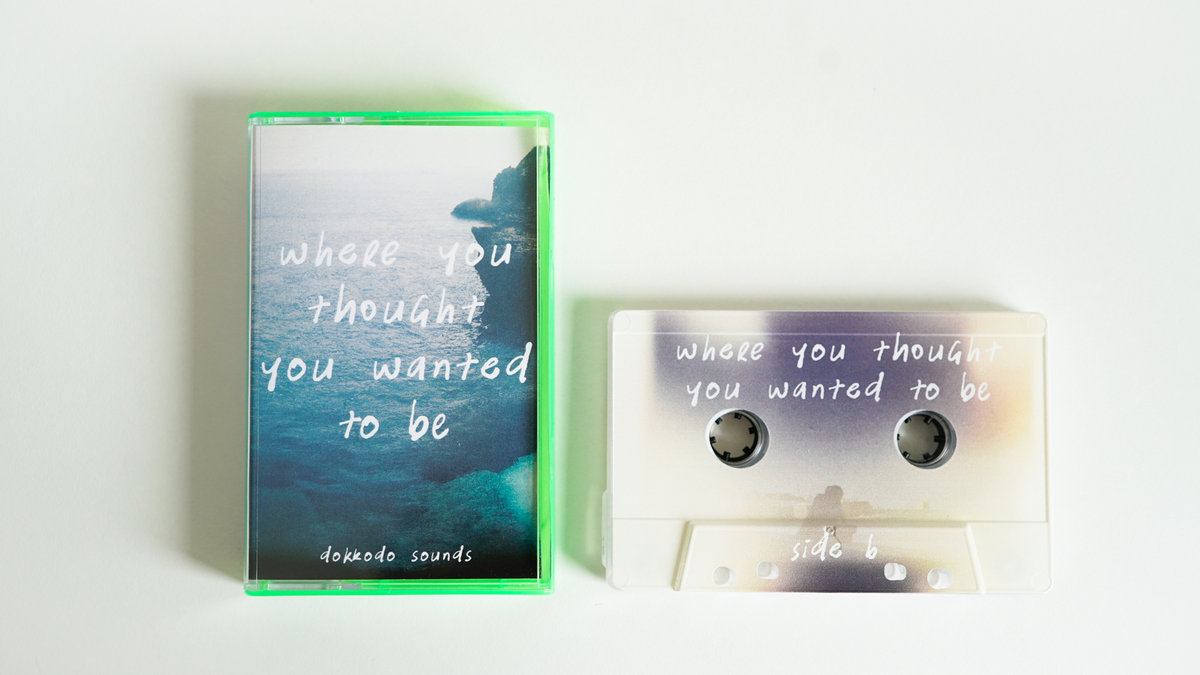 where you
thought
you wanted
to be
dokkodo sounds
where you thought
you wanted to be
side b